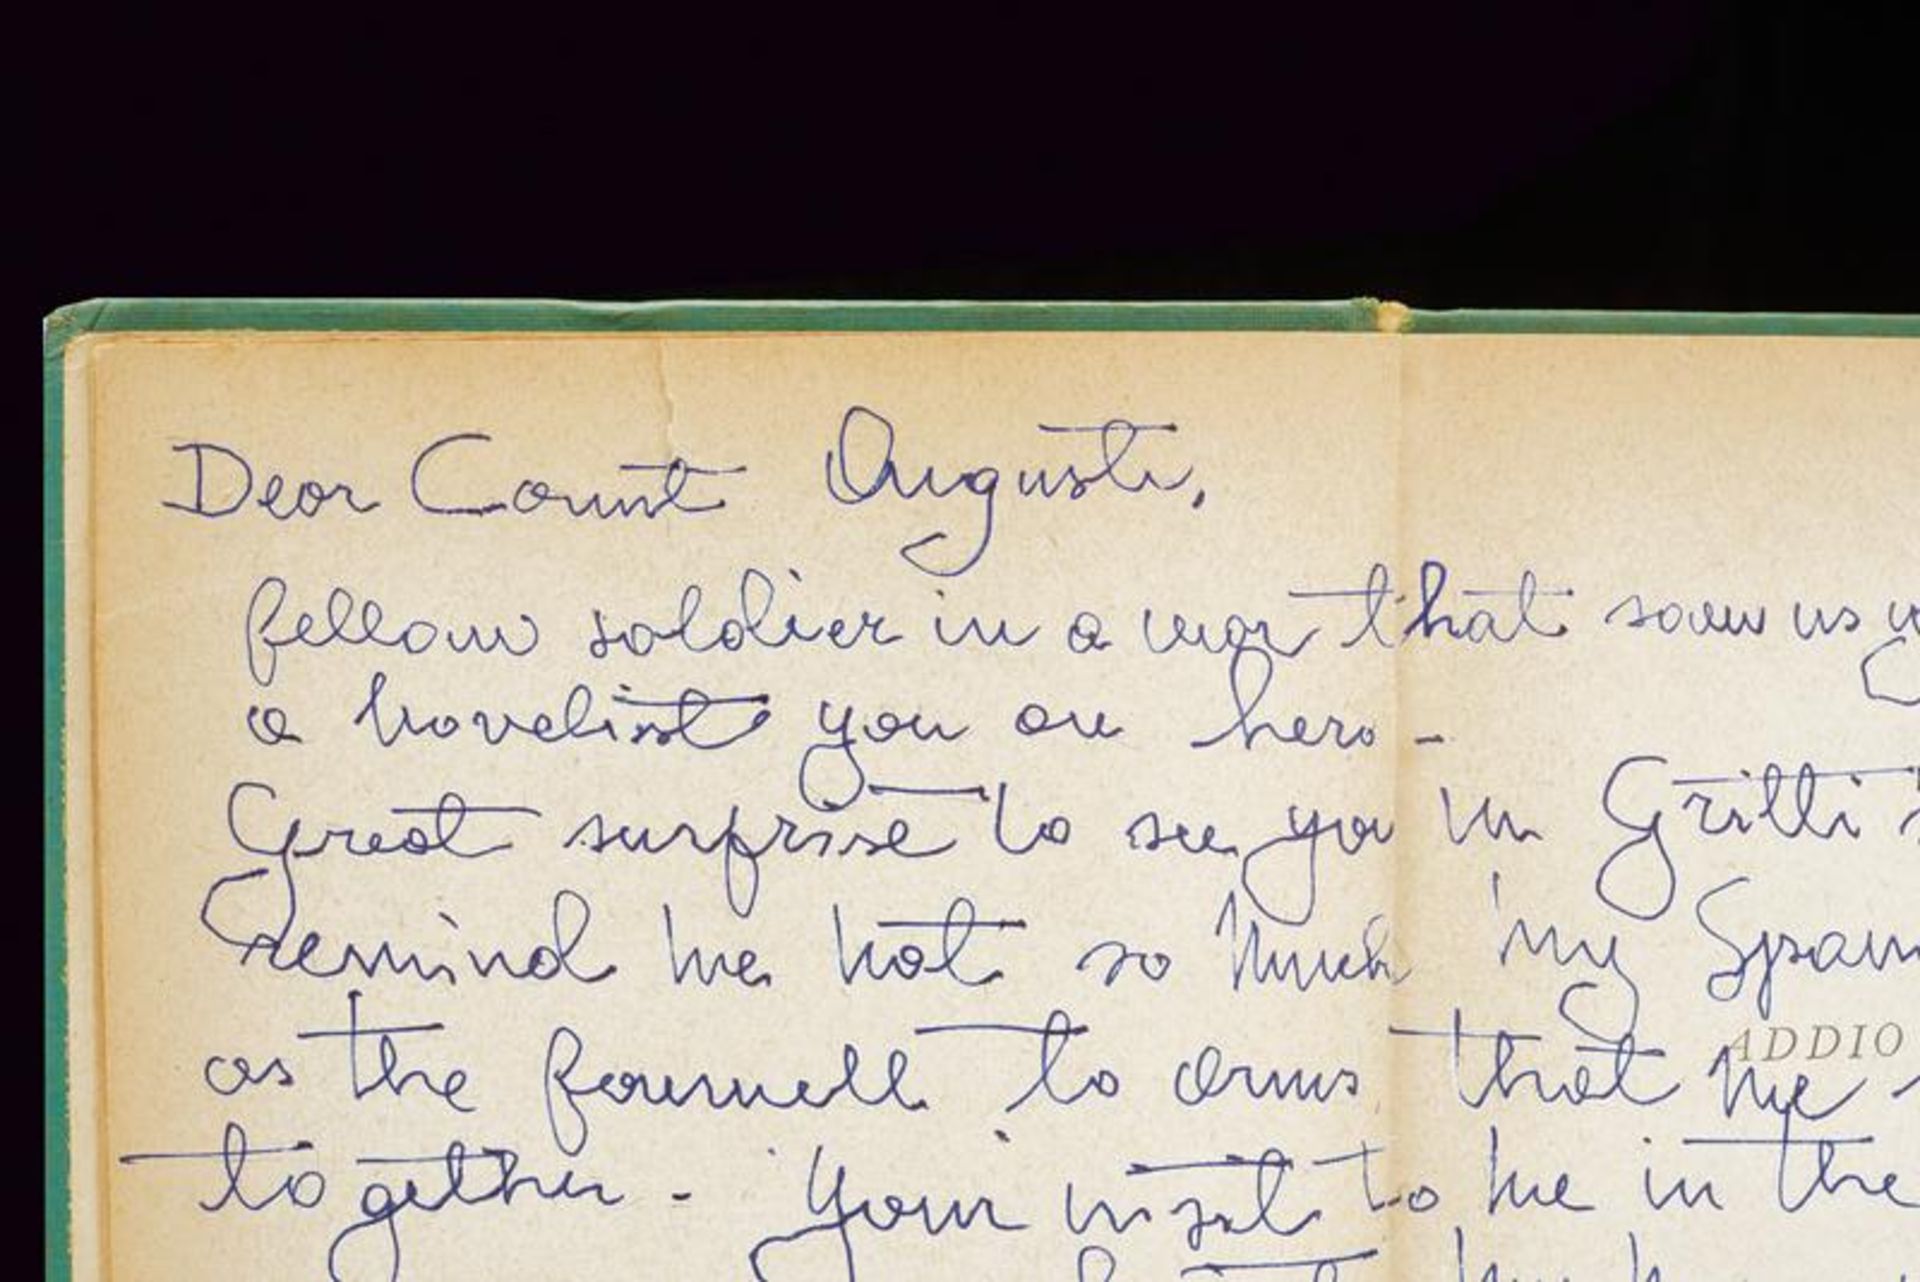 Dear Count Augusti,
fellow soldier in a war that saw us
a novelist you an hero -
Great surprise to see you in Gritti
remind me not so much my
as the farewell to arms that me
ADDIO
together - Your visit to me in the